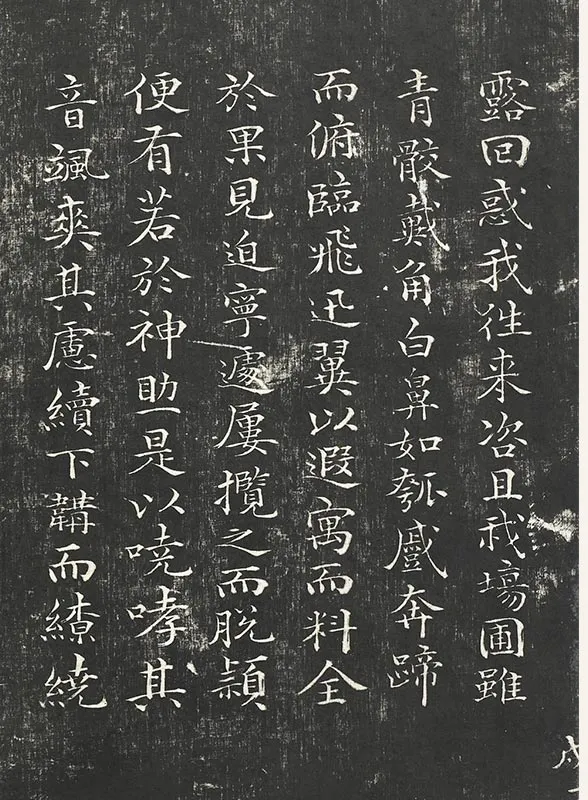 露回惑我往来咨且我場圃雖
青骹戴角白鼻如瓠戲奔蹄
而俯臨飛迅翼以遐寓而料全
於果見迫寧遽屢攬之而脫穎
便有若於神助是以嘵哮其
音颯爽其慮續下韝而繚繞